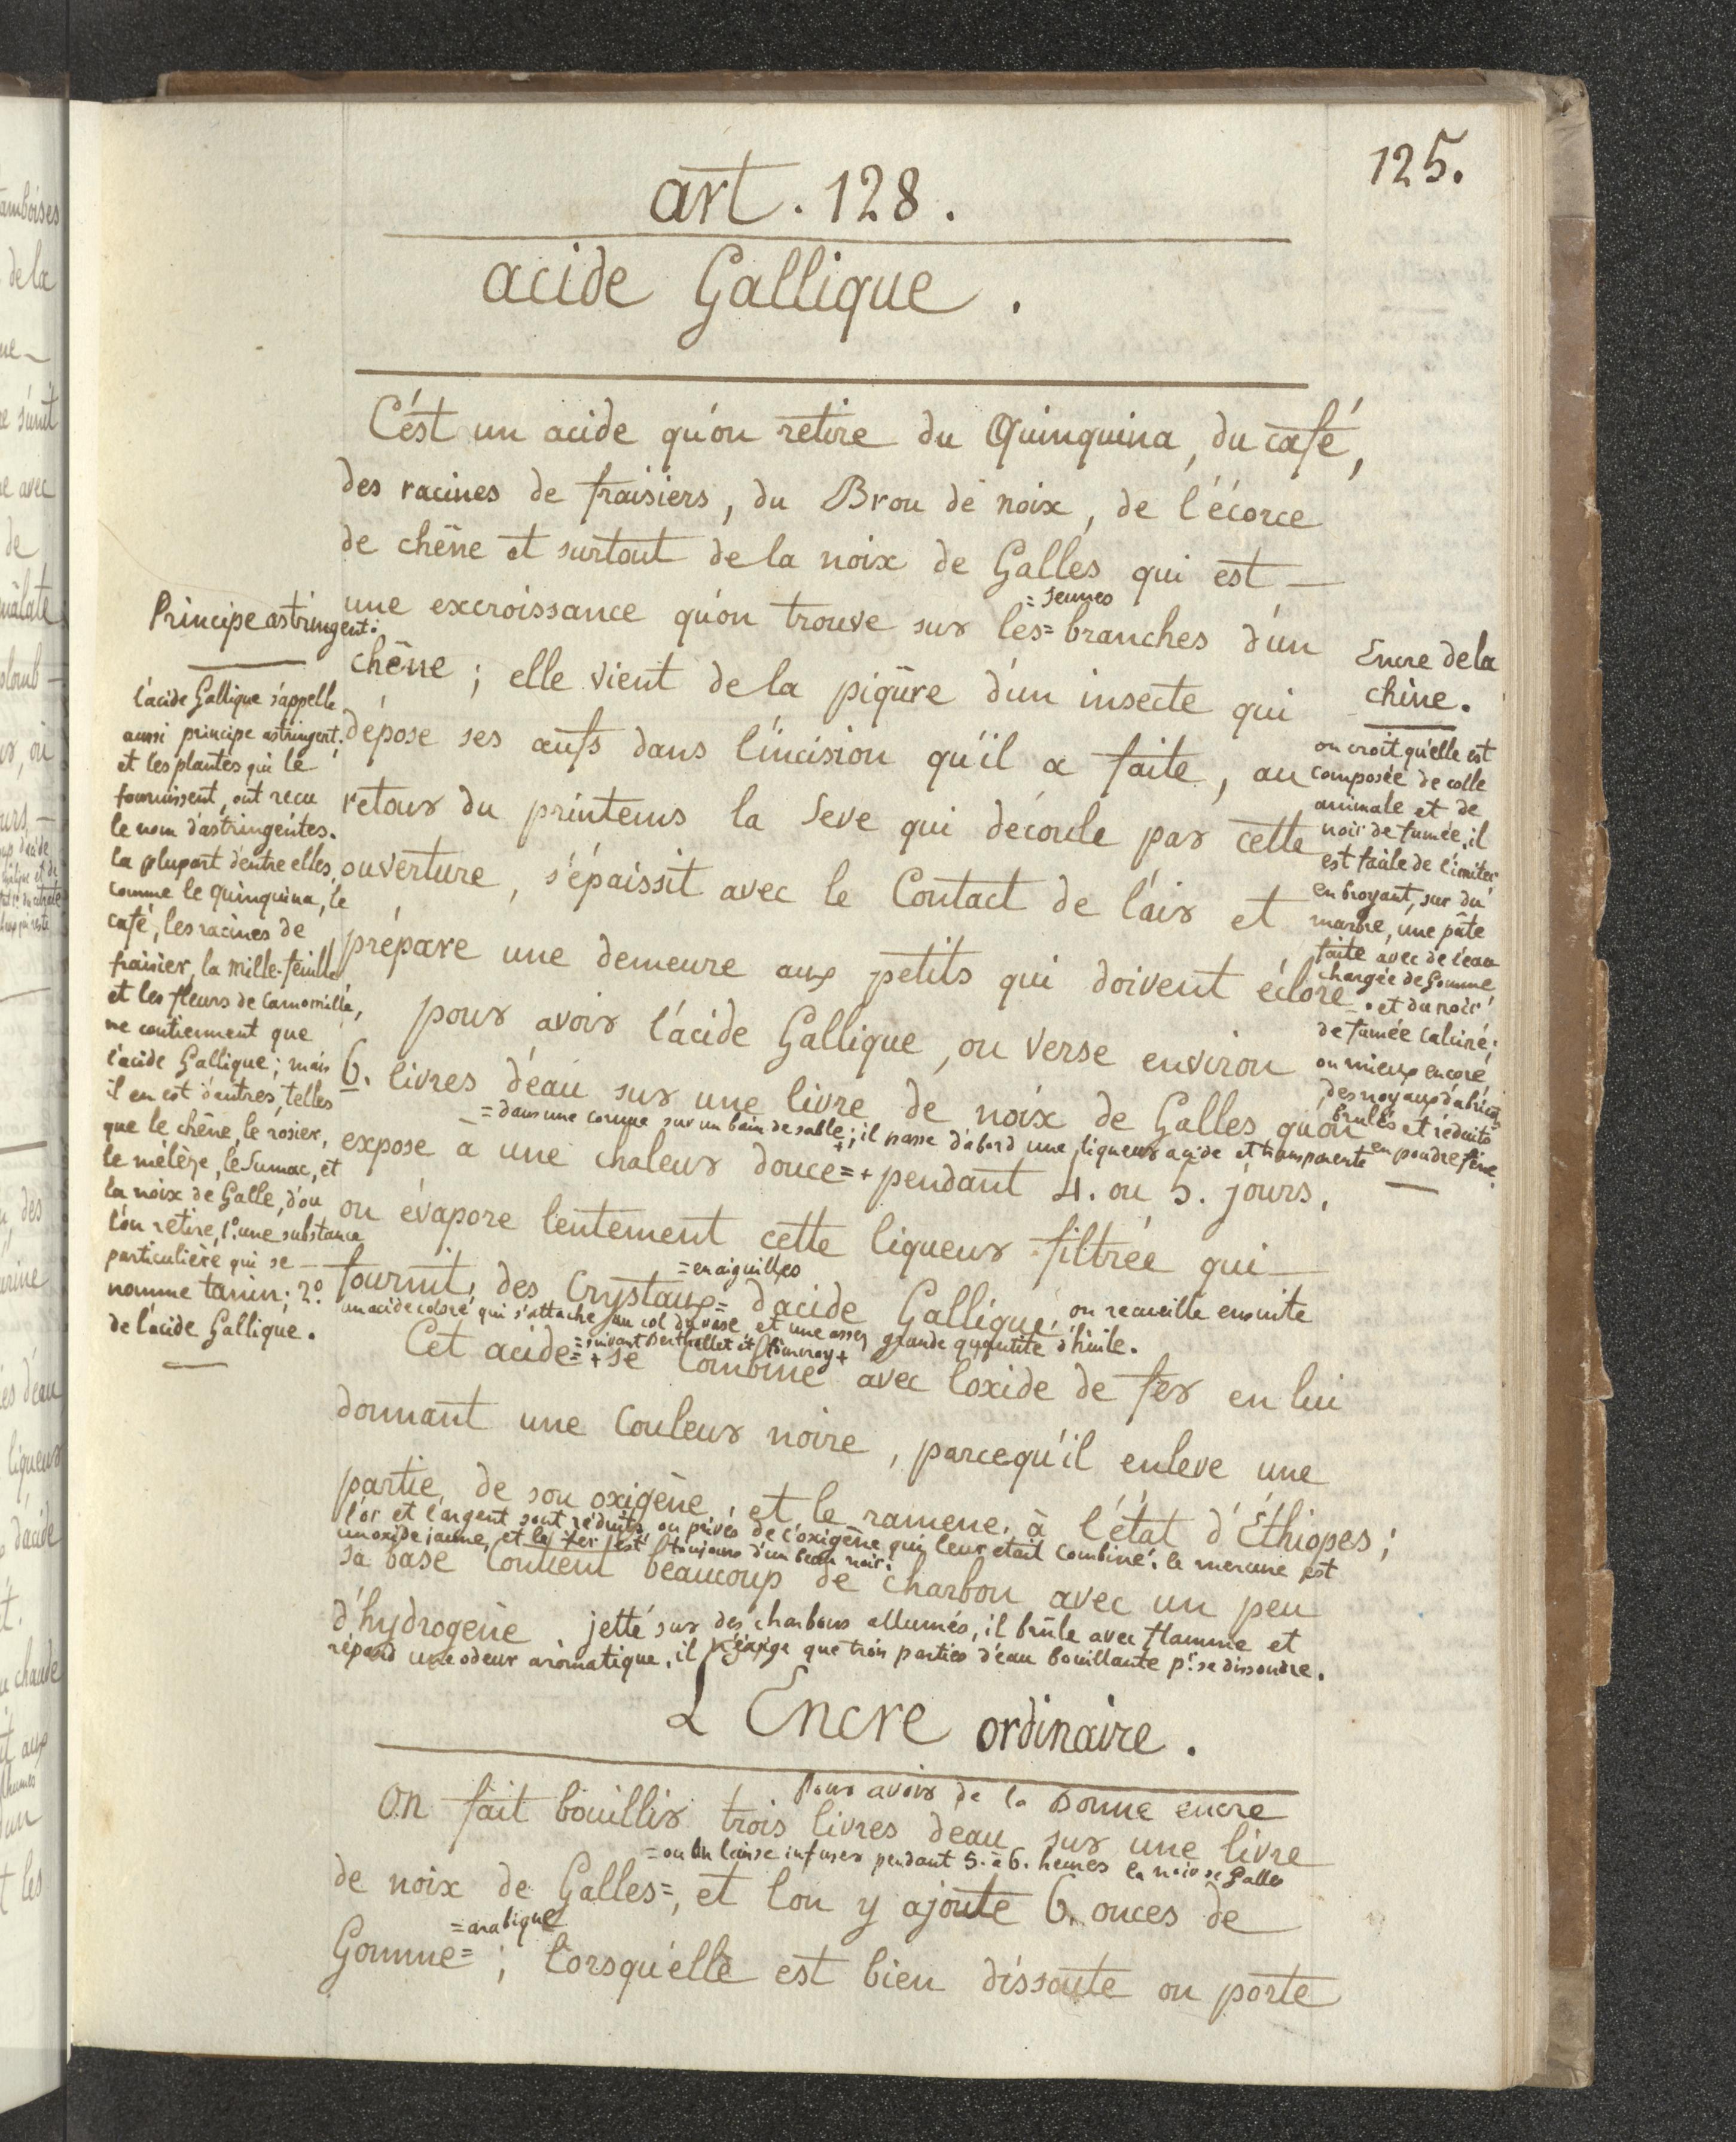 125.
art. 128.
acide Gallique.
C'est un acide qu'on retire du Quinquina, du café,
des racines de fraisiers, du Brou de noix, de l'écorce
de chêne et surtout de la noix de Galles qui est —
= jeunes
une excroissance qu'on trouve sur les= branches d'un
chêne ; elle vient de la piqûre d'un insecte qui
dépose ses œufs dans l'incision qu'il a faite, au
retour du printems la Seve qui découle par cette
ouverture, s'épaissit avec le Contact de l'air et
prépare une demeure aux petits qui doivent éclore.
pour avoir l'acide Gallique, on verse environ
6. livres d'eau sur une livre de noix de Galles qu'on
= dans une cornue sur un bain de sable ; il passe d'abord une liqueur acide et transparente
expose à une chaleur douce=+ pendant 4. ou 5. jours.
on évapore lentement cette liqueur filtrée qui —
= en aiguilles
fournit des Crystaux= d'acide Gallique. on recueille ensuite
un acide coloré qui s'attache au col du vase et une assez grande quantité d'huile.
= suivant Berthollet et Fourcroy +
Cet acide=+ se Combine avec l'oxide de fer en lui
donnant une Couleur noire, parcequ'il enleve une
partie de son oxigène, et le ramene à l'état d'Éthiops ;
l'or et l'argent sont réduits, ou privés de l'oxigène qui leur était combiné. le mercure est
un oxide jaune, et le fer est toujours d'un beau noir.
sa base Contient beaucoup de charbon avec un peu
d'hydrogène. jetté sur des charbons allumés, il brûle avec flamme et
répand une odeur aromatique. il n'éxige que trois parties d'eau bouillante pr. se dissoudre.
L'Encre ordinaire.
Pour avoir de la Bonne encre
on fait bouillir trois livres d'eau sur une livre
= ou l'on laisse infuser pendant 5. à 6. heures la noix de Galles
de noix de Galles=, et l'on y ajoute 6. onces de
= arabique
Gomme= ; lorsqu'elle est bien dissoute on porte
Principe astringent.
l'acide Gallique s'appelle
aussi principe astringent.
et les plantes qui le
fournissent, ont recu
le nom d'astringentes.
la plupart d'entre elles,
comme le quinquina, le
café, les racines de
fraisier, la mille-feuille
et les fleurs de Camomille,
ne contiennent que
l'acide Gallique ; mais
il en est d'autres, telles
que le chêne, le rosier,
le mélèze, le Sumac, et
la noix de Galle, d'ou
l'on retire, 1° une substance
particulière qui se —
nomme tanin ; 2°
de l'acide Gallique.
Encre de la
chine.
on croit qu'elle est
composée de colle
animale et de
noir de fumée, il
est facile de l'imiter
en broyant, sur du
marbre, une pâte
faite avec de l'eau
chargée de Gomme
et du noir
de fumée Calciné ;
ou mieux encore
des noyaux d'abricots
brulés et réduits
en poudre fine.